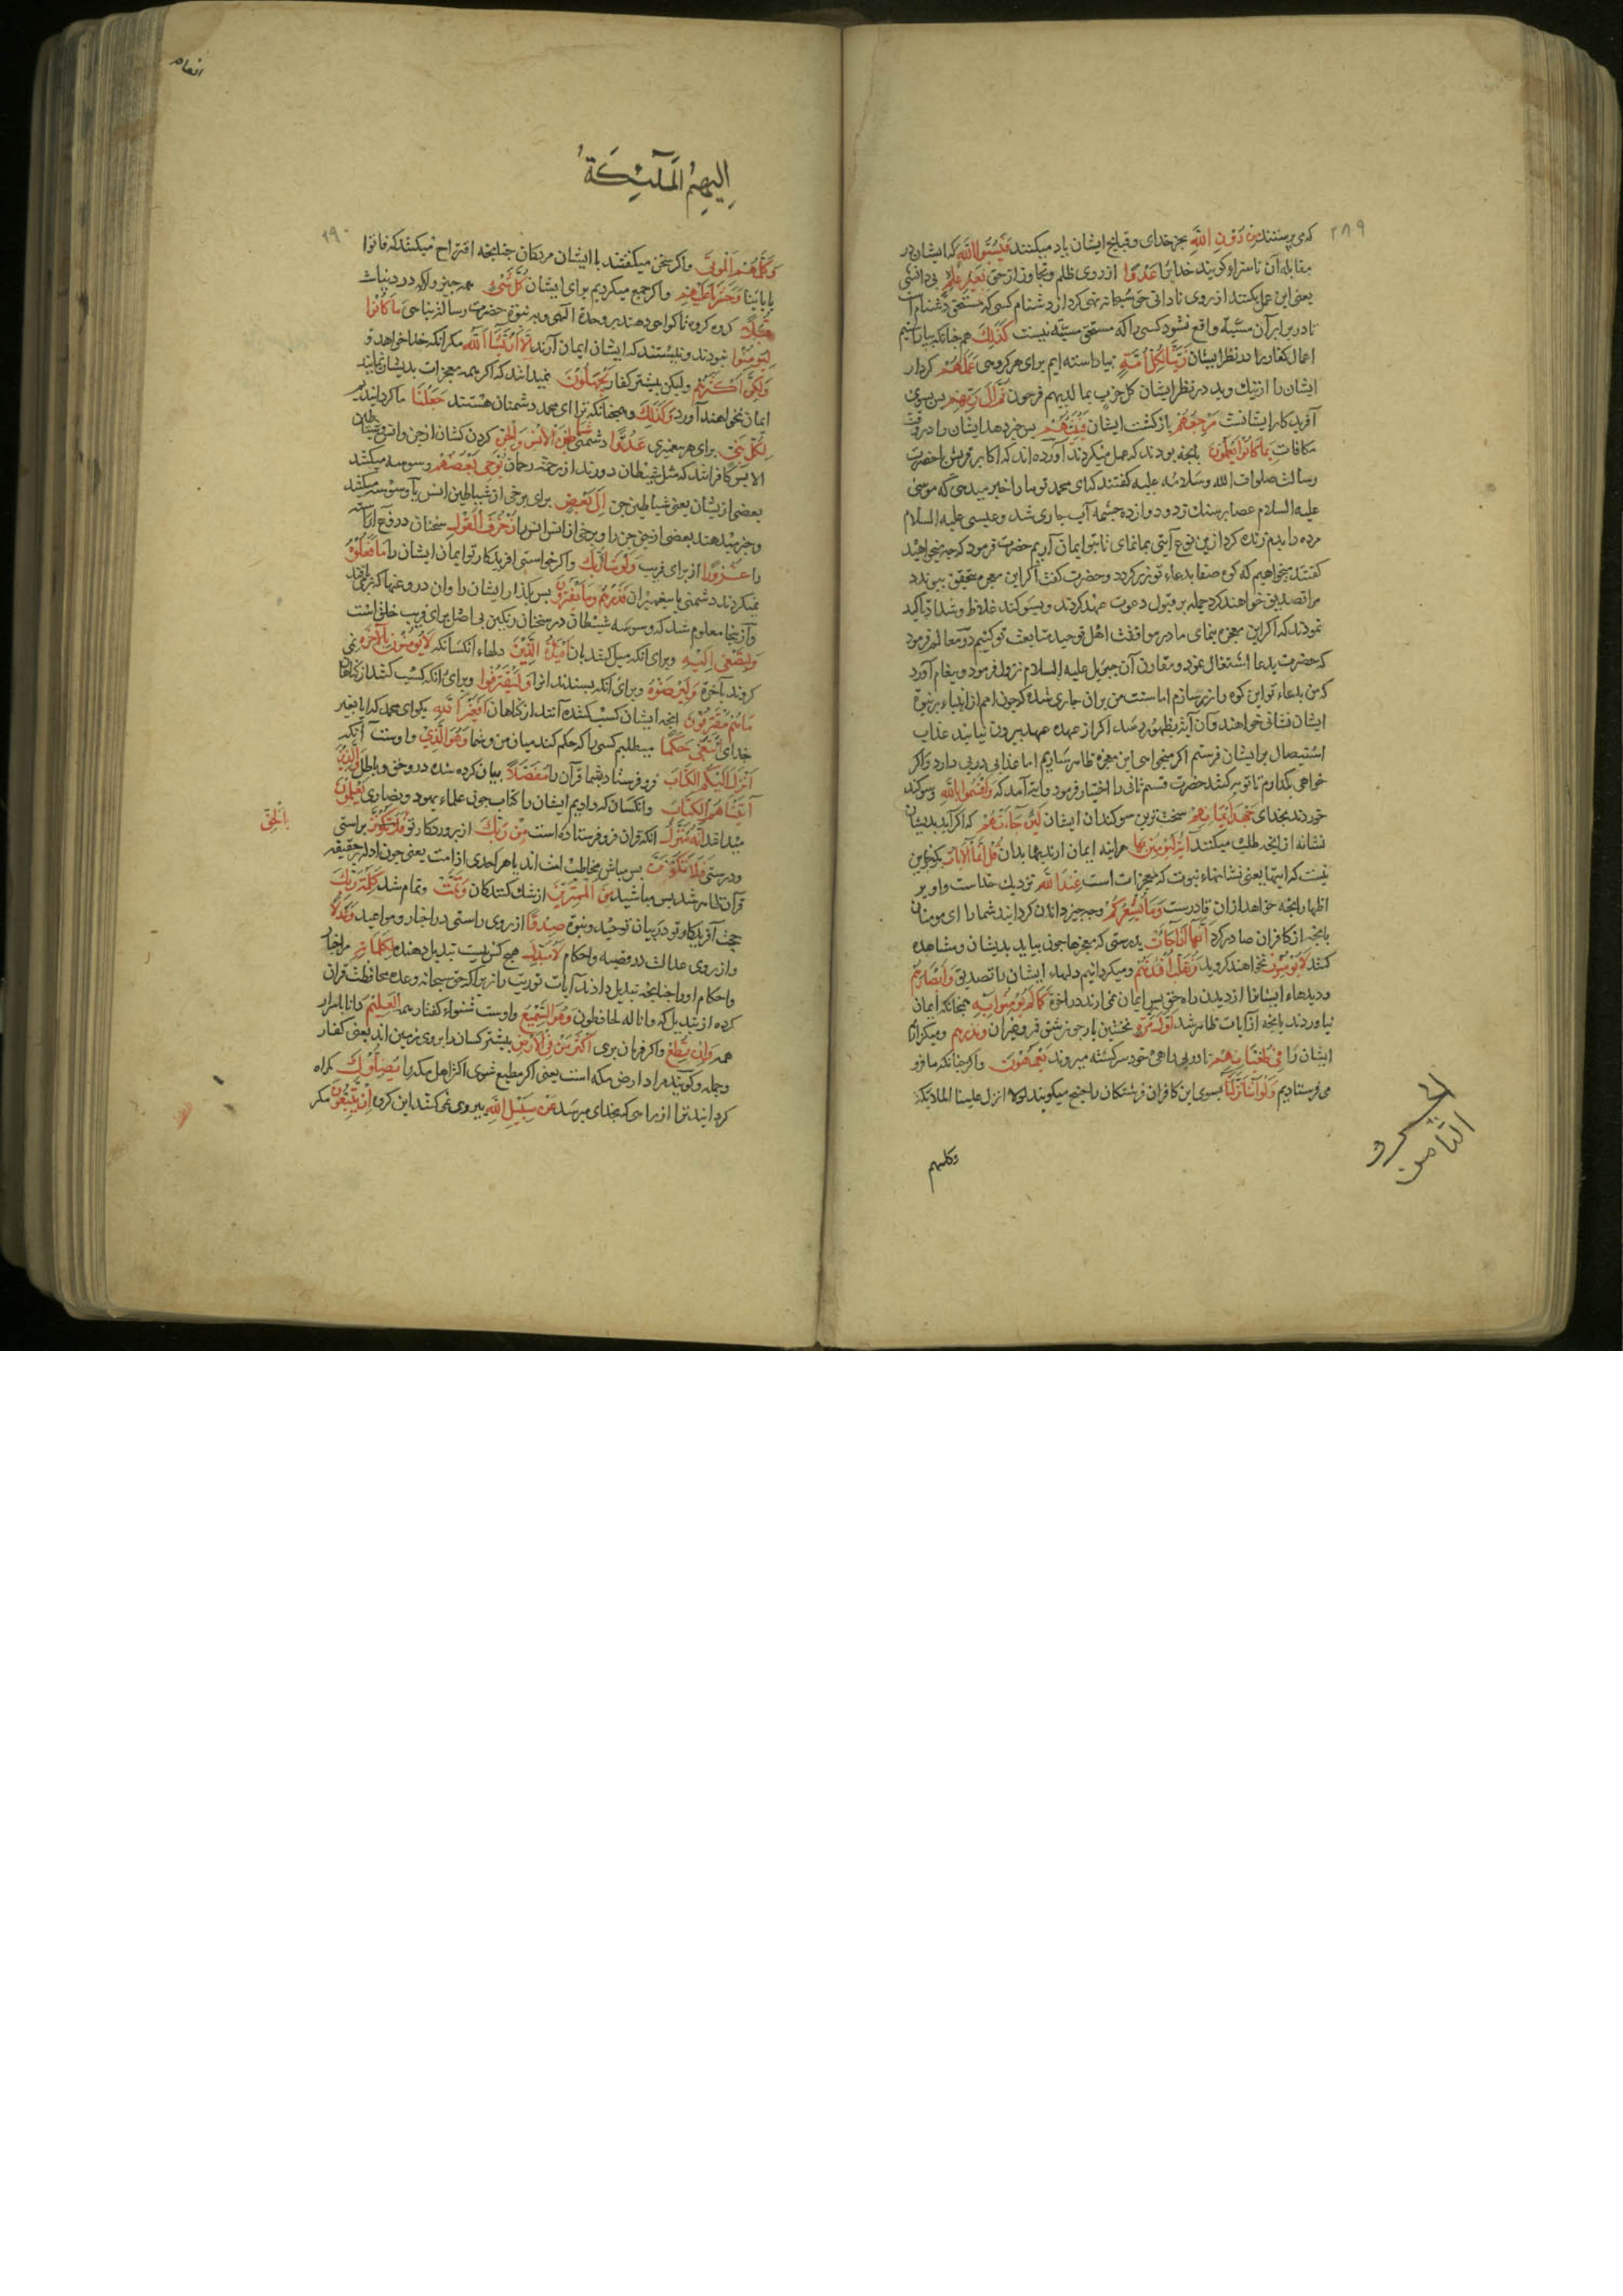 ۲۸۹
که می پرستند من دون الله بجز خدای و قبایح ایشان یاد میکنند فیسبوا الله که ایشان در
مقابله آن ناسزا و کویند خدایرا عدوا از روی ظلم و تجاوز از حق بغیر علم بی دانشی
یعنی این عمل بکنند از روی نادانی حق سبحانه نهی کرد از دشنام کسی که مستحق دشنام است
تا در برابر آن سیئه واقع نشود کسی را که مستحق سیئه نیست کذلک هم چنانکه بیاراستیم
اعمال کفار را در نظر ایشان زینا لکل امة بیاراسته ایم برای هر کروهی عملهم کردار
ایشان را از نیک و بد در نظر ایشان کل حزب بما لدیهم فرحون ثم الی ربهم پس بسوی
آفریدکار ایشانست مرجعهم بازکشت ایشان فینبئهم پس خبر دهد ایشان را در وقت
مکافات بما کانوا یعملون بانچه بودند که عمل میکردند آورده اند که اکابر قریش با حضرت
رسالت صلوات الله وسلامه علیه کفتند که ای محمد تو ما را خبر میدهی که موسی
علیه السلام عصا بر سنک زد و دوازده چشمه آب جاری شد و عیسی علیه السلام
مرده را بدم زنده کرد ازین نوع آیتی بما نمای تا بتو ایمان آریم حضرت فرمود که چه میخواهید
کفتند میخواهیم که کوه صفا بدعاء تو زر کردد و حضرت کفت اکر این معجزه متحقق پیوندد
مرا تصدیق خواهند کرد جمله بر قبول دعوت عهد کردند و بسوکند غلاظ و شداد تاکید
نمودند که اکر این معجزه بنمای ما در موافقت اهل توحید متابعت تو کنیم
که حضرت بدعا اشتغال نمود و مقارن آن جبرئیل علیه السلام نزول فرمود و پیغام آورد
که من بدعاء تو این کوه را زر سازم اما سنت من بران جاری شده که چون امم از انبیاء بر نبوة
ایشان نشانی خواهند و آن آیة بظهور رسد اکر از عهده عهد بیرون نیایند عذاب
استیصال بر ایشان فرستم اکر میخواهی این معجزه ظاهر سازیم اما عذابی در پی دارد و اکر
خواهی بکذارم تا توبه کنند حضرت قسم ثانی را اختیار فرمود و آیة آمد که واقسموا بالله و سوکند
خوردند بخدای جهد ایمانهم سخت ترین سوکندان ایشان لئن جاءتهم که اکر آید بدیشان
نشانه از انچه طلب میکنند آیة لیؤمنن بها هراینه ایمان ارند بها بدان قل انما الآیات بکو جز این
نیست که اینها یعنی نشانهاء نبوت که معجزات است عند الله نزدیک خداست و او بر
اظهار انچه خواهد ازان قادرست وما یشعرکم وچه چیز دانا کردانید شما را ای مومنان
بانچه از کافران صادر کرد انها اذا جاءت بدرستی که معجزها چون بیاید بدیشان و مشاهده
کنند لا یؤمنون نخواهند کروید ونقلب افئدتهم و میکردانیم دلهاء ایشان را تصدیق وابصارهم
و دیدهاء ایشانرا از دیدن راه حق پس ایمان نمی ارند در اخرة کما لم یؤمنوا به همچنانکه ایمان
نیاوردند بانچه از آیات ظاهر شد اول مرة نخستین بار چون شق قمر و غیر آن ونذرهم و میکذاریم
ایشان را فی طغیانهم تا در بی راهی خود سرکشته میروند یعمهون و اکر چنانکه ما فرو
می فرستادیم ولو اننا نزلنا بسوی این کافران فرشتکان را چنانچه میکویند لولا انزل علینا الملائکة
وکلمهم
الثامن
انعام
الیهم الملئکة
۲۹۰
وکلمهم الموتی و اکر سخن میکفتند با ایشان مردکان چنانچه اقتراح میکنند که فاتوا
بابائنا وحشرنا علیهم و اکر جمع میکردیم برای ایشان کل شیء همه چیز را که در دنیاست
قبلا کروه کروه تا کواهی دهند بر وحدة الهی و بر نبوة حضرت رسالة پناهی ما کانوا
لیؤمنوا نبودند و نیستند که ایشان ایمان آرند الا ان یشاء الله مکر آنکه خدا خواهد
ولکن اکثرهم ولیکن بیشتر کفار یجهلون نمیدانند که اکر همه معجزات بدیشان نمایند
ایمان نخواهند آورد وکذلک و همچنانکه ترا ای محمد دشمنان هستند جعلنا ما کردانیدیم
لکل نبی برای هر پیغمبری عدوا دشمنی شیاطین الانس والجن کردن کشان از جن و انس و شیاطین
الانس کافرانند که مثل شیطان دورند از رحمة رحمان یوحی بعضهم وسوسه میکند
بعضی ازیشان یعنی شیاطین جن الی بعض برای برخی از شیاطین انس یا وسوسه میکنند
و خبر میدهند بعضی از جن جن را و برخی از انس انس را زخرف القول سخنان دروغ آراسته
را غرورا از برای فریب ولو شاء ربک و اکر خواستی افریدکار تو ایمان ایشان را ما فعلوه
نمیکردند دشمنی با پیغمبران فذرهم وما یفترون پس بکذار ایشان را و ان دروغها که بر می بافند
و از اینجا معلوم شد که وسوسه شیطان در سخنان رنکین بی اصل برای فریب خلق است
ولتصغی الیه و برای آنکه میل کنند بان افئدة الذین دلهاء آنکسانکه لا یؤمنون بالآخرة نمی
کروند بآخرة ولیرضوه و برای آنکه بپسندند انرا ولیقترفوا و برای آنکه کسب کنند از کناهان
ما هم مقترفون انچه ایشان کسب کننده آنند از کناهان افغیر الله بکو ای محمد که ایا بغیر
خدای ابتغی حکما میطلبم کسی را که حکم کند میان من و شما وهو الذی و اوست آنکه
انزل الیکم الکتاب فرو فرستاد بشما قرآن را مفصلا بیان کرده شده درو حق و باطل والذین
آتیناهم الکتاب و انکسان که دادیم ایشان را کتاب چون علماء یهود و نصاری یعلمون
میدانند انه منزل انکه قران فرو فرستاده است من ربک از پروردکار تو براستی
بالحق
و درستی فلا تکونن پس مباش مخاطب امت اند یا هر احدی از امت یعنی چون ادله بر حقیقة
قرآن ظاهر شد پس مباشید من الممترین از شک کنندکان وتمت و تمام شد کلمة ربک
حجت آفریدکار تو در بیان توحید و نبوة صدقا از روی راستی در اخبار و مواعید وعدلا
و از روی عدالت در قضیه و احکام لا مبدل هیچ کس نیست تبدیل دهنده لکلماته مر اخبار
و احکام او را چنانچه تبدیل دادند آیات توریت را زیرا که حق سبحانه وعده محافظت قران
کرده از تبدیل که وانا له لحافظون وهو السمیع و اوست شنواء کفتار همه العلیم دانا باسرار
همه وان تطع و اکر فرمان بری اکثر من فی الارض بیشتر کسان را بر روی زمین اند یعنی کفار
و جمله و کویند مراد ارض مکه است یعنی اکر مطیع شوی اکثر اهل مکه را یضلوک کمراه
کردانند ترا از راهی که بخدای میرسد عن سبیل الله پیروی نمی کنند این کروه ان یتبعون مکر